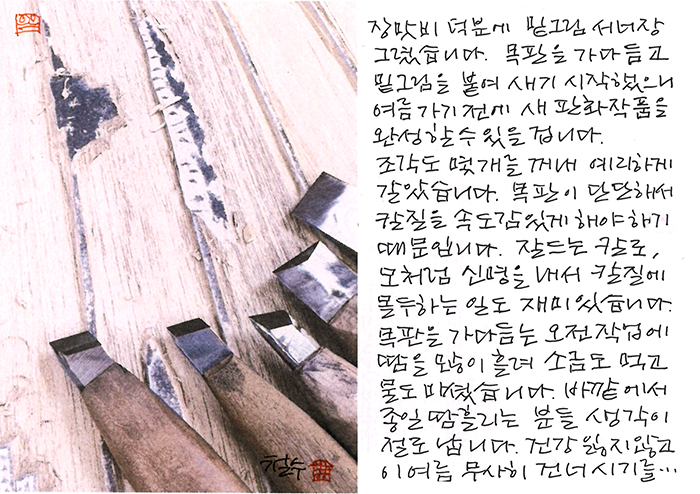 장맛비 덕분에 밑그림 서너장
그렸습니다. 목판을 가다듬고
밑그림을 붙여 새기 시작했으니
여름 가기 전에 새 판화작품을
완성할 수 있을 겁니다.
조각도 몇개를 꺼내 예리하게
갈았습니다. 목판이 단단해서
칼질을 속도감있게 해야하기
때문입니다. 잘드는 칼로,
모처럼 신명을 내서 칼질에
몰두하는 일도 재미있습니다.
목판을 가다듬는 오전작업에
땀을 많이 흘려 소금도 먹고
물도 마셨습니다. 바깥에서
종일 땀흘리는 분들 생각이
절로 납니다. 건강 잃지않고
이여름 무사히 건너시기를…
철수